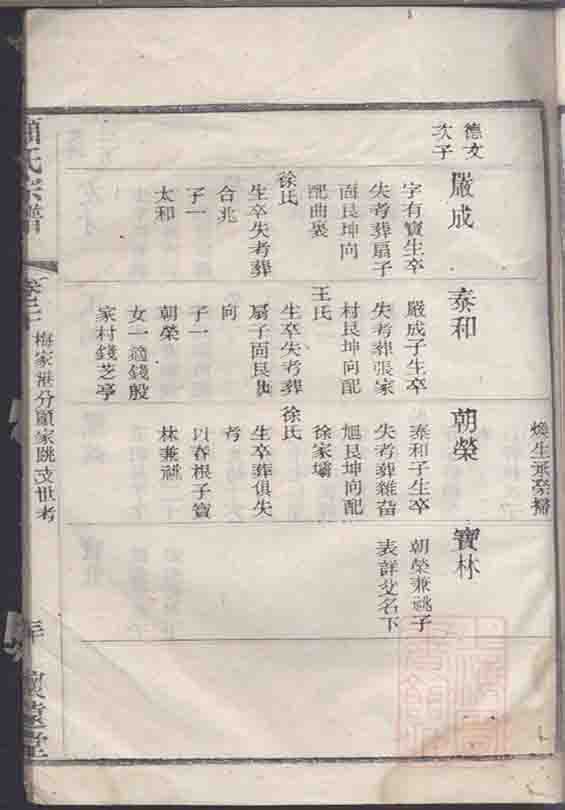 煥生承榮嗣
德文
次子
嚴成
字有寶生卒
失考葬扇子
面艮坤向
配曲褒
徐氏
生卒失考葬
合兆
子一
太和
泰和
嚴成子生卒
失考葬張家
村艮坤向配
王氏
生卒失考葬
扇子面艮
向
子一
朝榮
女一適錢殷
家村錢芝亭
朝榮
泰和子生卒
失考葬雜
旭艮坤向配
徐家壩
徐氏
生卒葬俱失
考
以春根子寶
林兼祧
寶林
朝榮兼祧子
表詳父名下
顧氏宗譜
梅家港分顧家跳支世考
懷遠堂